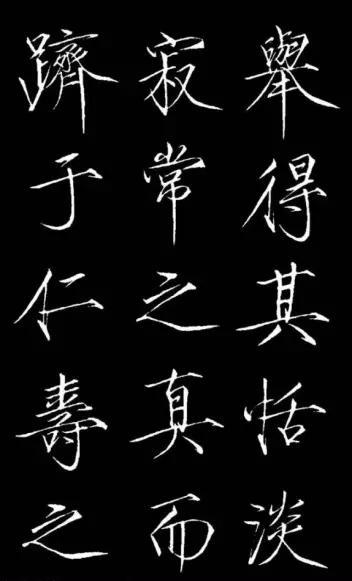 舉得其恬淡
寂常之真而
躋于仁壽之